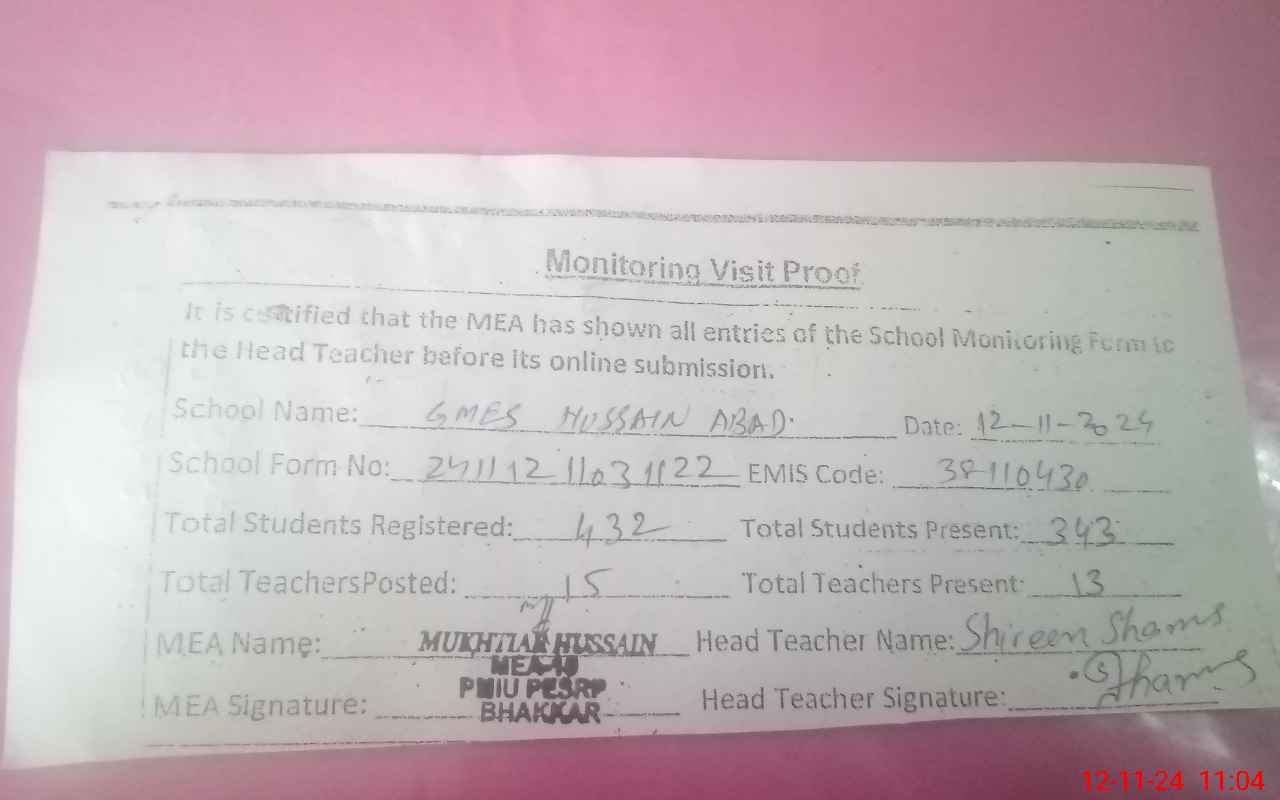 Monitoring Visit Proof
It is certified that the MEA has shown all entries of the School Monitoring Form to
the Head Teacher before its online submission.
School Name: GMES HUSSAIN ABAD. Date: 12-11-2024
School Form No: 241112 11031122 EMIS Code: 38110430
Total Students Registered: 432 Total Students Present: 343
Total TeachersPosted: 15 Total Teachers Present: 13
MEA Name: MUKHTIAR HUSSAIN Head Teacher Name: Shireen Shams
MEA
PMIU PESRP
MEA Signature: BHAKKAR Head Teacher Signature: Shams
12-11-24 11:04